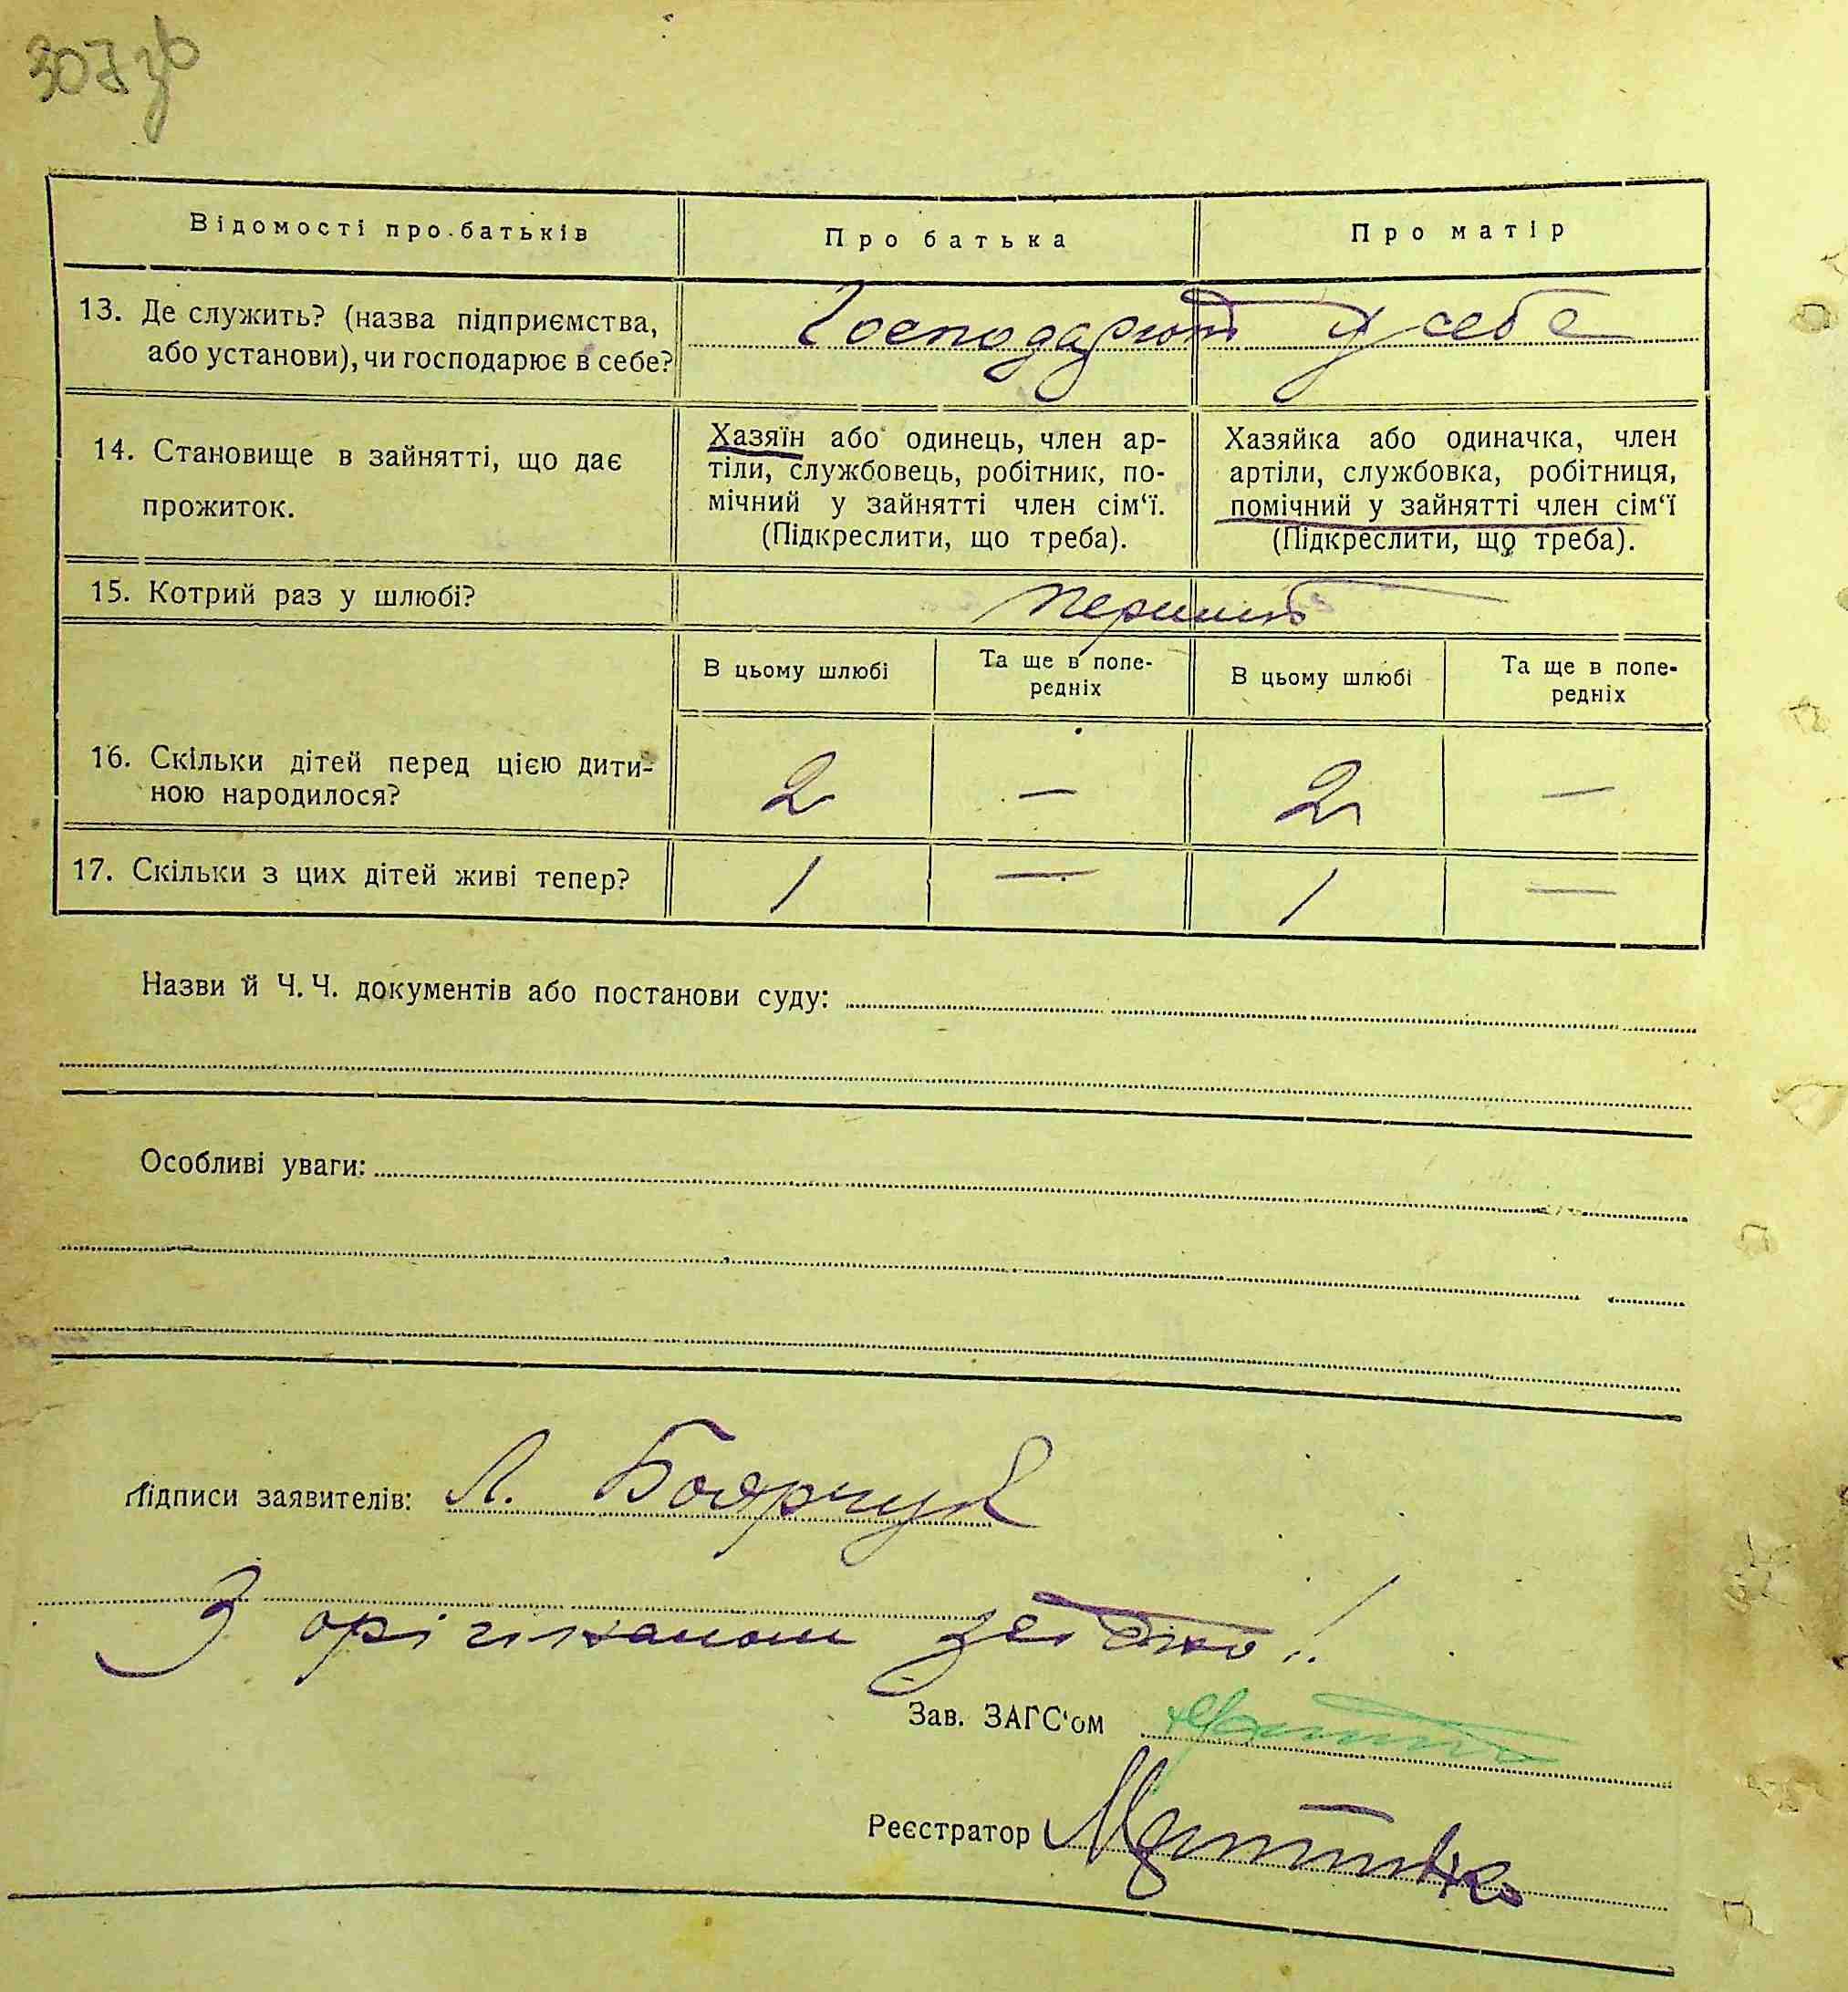 307 зв
Відомості про батьків
Про батька
Про матір
13. Де служить? (назва підприємства,
або установи), чи господарює в себе?
Господарют у себе
14. Становище в зайнятті, що дає
прожиток.
Хазяїн або одинець, член ар-
тіли, службовець, робітник, по-
мічний у зайнятті член сім‘ї.
(Підкреслити, що треба).
Хазяйка або одиначка, член
артіли, службовка, робітниця,
помічний у зайнятті член сім‘ї
(Підкреслити, що треба).
15. Котрий раз у шлюбі?
В цьому шлюбі
Та ще в попе-
редніх
В цьому шлюбі
Та ще в попе-
редніх
16. Скільки дітей перед цією дити-
ною народилося?
2 — 2 —
17. Скільки з цих дітей живі тепер?
1 — 1 —
Назви й Ч. Ч. документів або постанови суду:
Особливі уваги:
Підписи заявителів: Л. Боярчук
З орігіналом
Зав. ЗАГС‘ом
Реєстратор